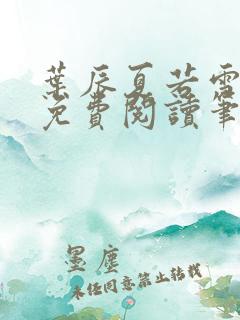 葉辰夏若雪
免費閱讀筆
墨塵
未經同意禁止轉載